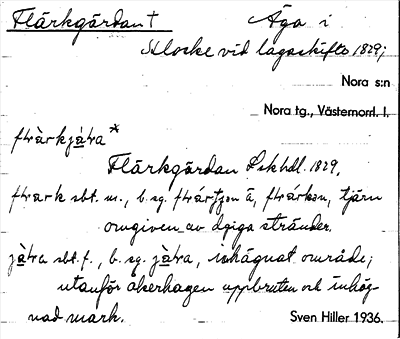 Flärkgärdan † Äga i
Klocke vid lagaskifte 1829;
Nora s:n
Nora tg., Västernorrl. l.
flàrkjàra*
Flärkgärdan Lskhdl. 1829.
flark sbt. m., b. sg. tjärn
omgiven av dyiga stränder.
jàra sbt. f., b. sg. jàra, inhägnat område;
utanför åkerhagen uppbruten och inhäg-
nad mark.
Sven Hiller 1936.